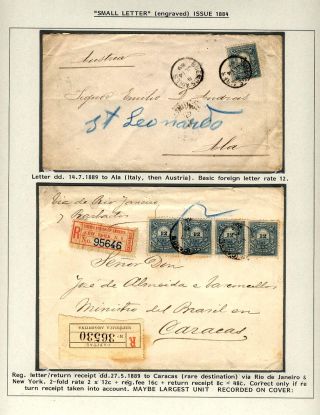 "SMALL LETTER" (engraved) ISSUE 1884
Austria
Signor Emilio d' Andrais
St Leonardo
Ala
Letter dd. 14.7.1889 to Ala (Italy, then Austria). Basic foreign letter rate 12.
Via de Rio Janeiro
y Barbados
No. 95646
12 12 12 12
Señor Don
José de Almeida e Vasconcellos
Ministro del Brasil en
Caracas
R
36530
Reg. letter/return receipt dd.27.5.1889 to Caracas (rare destination) via Rio de Janeiro &
New York. 2-fold rate 2 x 12c + reg.fee 16c + return receipt 8c = 48c. Correct only if re
turn receipt taken into account. MAYBE LARGEST UNIT RECORDED ON COVER: